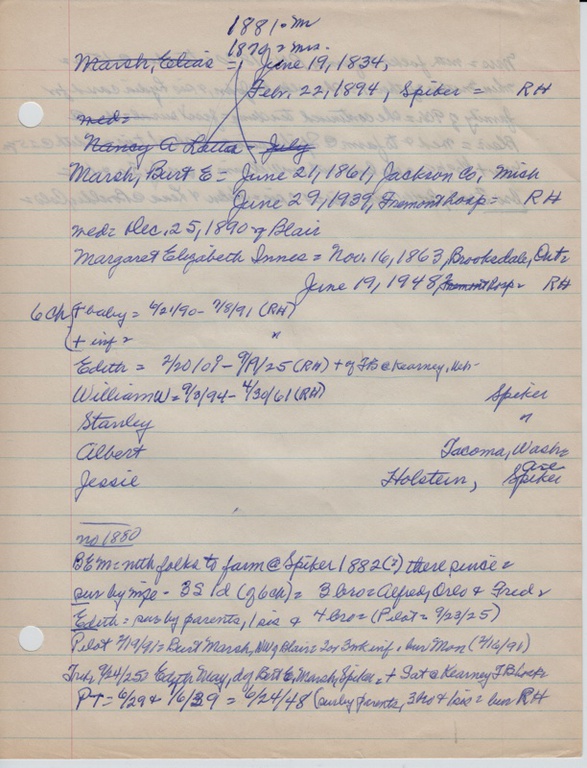 1881 = Mr
1879 = Mrs.
Marsh, Elias = June 19, 1834,
Febr. 22, 1894, Spiker = RH
med=
Nancy A Latta - July
Marsh, Burt E = June 21, 1861, Jackson Co, Mich
June 29, 1939, Fremont hosp = RH
med = Dec. 25, 1890 @ Blair
Margaret Elizabeth Innes = Nov. 16, 1863, Brooksdale, Ont =
June 19, 1948, Fremont hosp = RH
6 ch { + baby = 6/21/90 - 7/8/91 (RH)
+ inf = "
Edith = 2/20/0? - 9/19/25 (RH) + of TB @ Kearney, Neb -
William W = 9/3/94 - 4/30/61 (RH) Spiker
Stanley "
Albert Tacoma, Wash =
Jessie Holstein, Spiker
no 1880
BEM = with folks to farm @ Spiker 1882 (?) there since =
sur by 3S 1d (of 6 ch) = 3 bro = Alfred, Orlo & Fred =
Edith = sur by parents, 1 sis & 4 bro = (Pilot = 9/23/25)
Pilot 2/19/91 = Burt Marsh, NW of Blair = 3 wk inf, bur Mon (2/16/91)
Trib, 9/24/25 = Edith May, d of Burt E. Marsh, Spiker, + Sat @ Kearney TB hosp =
PT = 6/29 & 7/6/39 = 6/24/48 (sur by parents, 3 bro & 1 sis = bur RH